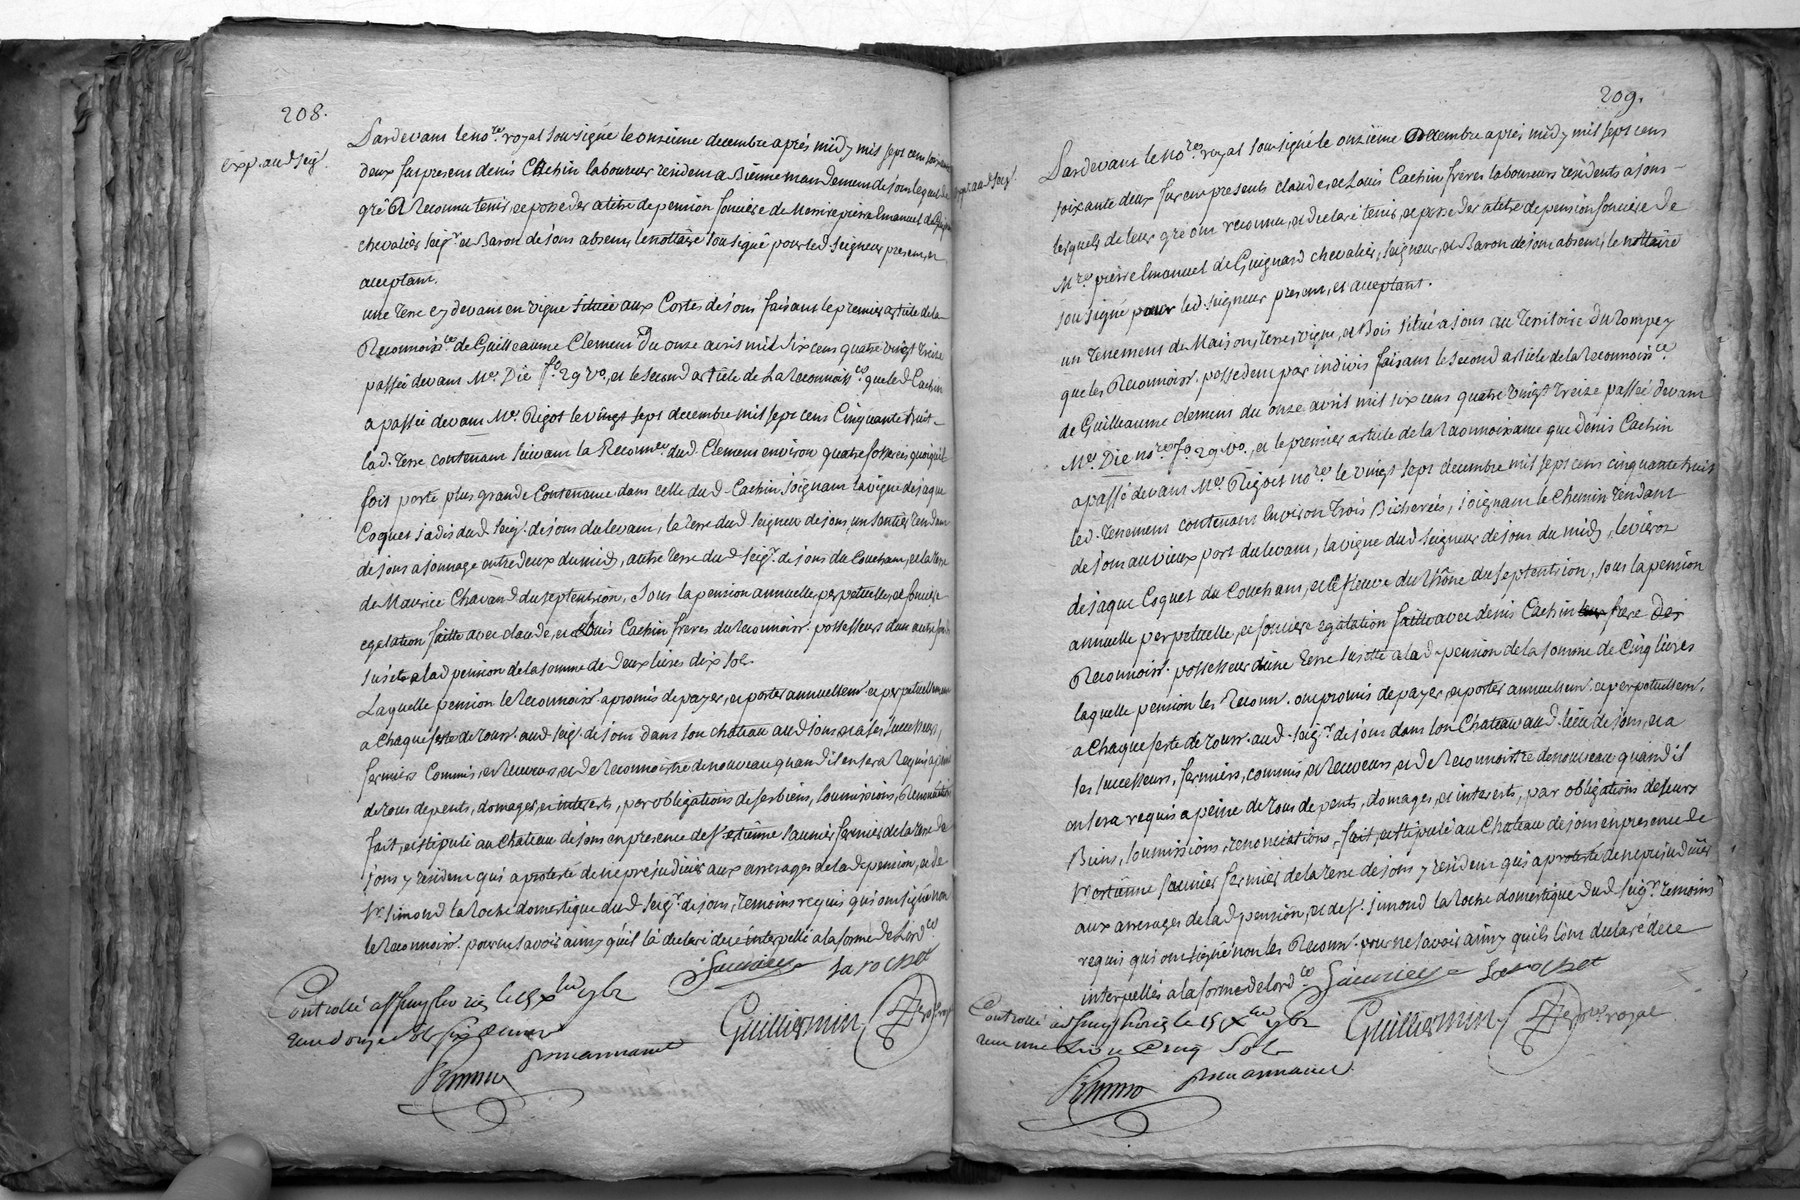 208.
exp. aud seigr.
Pardevant le nore royal sousigné le onzieme decembre après midy mil sept cens soixante
deux fut present denis Cachin laboureur resident a Bienne mandement de jons lequel de
gré A Reconnu tenir, et posseder a titre de pension fonciere de Messire pierre Emanuel de Guignard
chevalier seigr et Baron de jons absent, le nottaire sousigné pour led seigneur present, et
acceptant.
une Terre cy devant en vigne située aux Corte de jons faisant le premier article de la
Reconnoissce de Guilleaume Clement du onze avril mil six cens quatre vingt treize
passée devant Me. Dié fo. 29 vo, et le second article de La reconnoissce. que led Cachin
a passée devant Me. Rigot le vingt sept decembre mil sept cens Cinquante huit -
lad. Terre contenant suivant la Reconnce. dud. Clement environ quatre fosserées quoiqu'il
soit porté plus grande Contenance dans celle dud. Cachin joignant la vigne de jaque
Coquet jadis dud seigr. de jons du levant, la terre dud seigneur de jons un sentier tendant
de jons a jonnage entre deux du midy, autre terre dud seigr. de jons du Couchant, et la terre
de Maurice Chavand du septentrion. Sous la pension annuelle, perpetuelle, et fonciere
egalation faitte avec claude, et Louis Cachin freres du reconnoiss. possesseurs d'un autre fonds
sujet a lad pension de la somme de deux livres dix sols
Laquelle pension le reconnoiss. a promis de payer, et porter annuellemt. et perpetuellement
a Chaque feste de touss. aud. seigr. de jons dans son chateau aud jons, et a ses successeurs,
fermiers Commis, et receveurs, et de Reconnoistre de nouveau quand il en sera Requis a peine
de tous depents, domages, et interests, par obligations de ses biens, soumissions, Renonciations
fait, et stipulé au Chateau de jons en presence de sr estienne saunier fermier de la terre de
jons y resident qui a protesté de ne prejudicier aux arrerages de lad pension, et de
sr. simond la roche domestique dud seigr. de jons, temoins requis qui ont signé non
le reconnoiss. pour ne savoir ainsy qu'il l'a declaré de ce interpellé a la forme de L'ordce
Saunier La rochet
Guilliermin Nore royal
Controllé a st simphorien le 15 xbre 1762
Recu douze sols six deniers
209.
exp. aud seigr.
Pardevant le nore. royal sousigné le onzième Decembre après midy mil sept cens
soixante deux furent presents claude, et Louis Cachin frères laboureurs résidents a jons -
lesquels de leur gré ont reconnu, et declaré tenir, et posseder a titre de pension fonciere de
Mre pierre Emanuel de Guignard chevalier, seigneur, et Baron de jons absent, le nottaire
sousigné pour led. seigneur present, et acceptant.
un Tenement de Maison, terre, vigne, et Bois situé a jons au Teritoire du rompey
que les Reconnoiss. possedent par indivis faisant le second article de la reconnoissce.
de Guilleaume clement du onze avril mil six cens quatre vingt treize passée devant
Me. Dié nore fo. 29. vo., et le premier article de la reconnoissance que denis Cachin
a passé devant Me. Rigott nore le vingt sept decembre mil sept cens cinquante huit
led. Tenement contenant Environ trois Bicherées, joignant le Chemin tendant
de jons au vieux port du levant, la vigne dud seigneur de jons du midy, le vierz
de jaque Coquet du Couchant, et le fleuve du rhône du septentrion, sous la pension
annuelle perpetuelle, et fonciere egalation faitte avec denis Cachin frere des
Reconnoiss. possesseur d'une terre sujette a lad. pension de la somme de Cinq livres
laquelle pension les reconn. ont promis de payer, et porter annuellemt. et perpetuellemt.
a Chaque feste de touss. aud. seigr. de jons dans son Chateau aud. lieu de jons, et a
ses successeurs, fermiers, commis, et receveurs, et de reconnoistre de nouveau quand il
en sera requis a peine de tous depents, domages, et interests, par obligations de leurs
Biens, soumissions, renonciations, fait, et stipulé au Chateau de jons en presence de
sr. estienne saunier fermier de la terre de jons y resident qui a protesté de ne prejudicier
aux arrerages de lad. pension, et de sr. simond la roche domestique dud seigr. temoins
requis qui ont signé non les Reconn. pour ne savoir ainsy qu'ils l'ont declaré de ce
interpellés a la forme de lordce Saunier La rochet
Guilliermin Nore. royal
Controllé a st simphorien le 15 xbre 1762
recu une Livre Cinq Sols